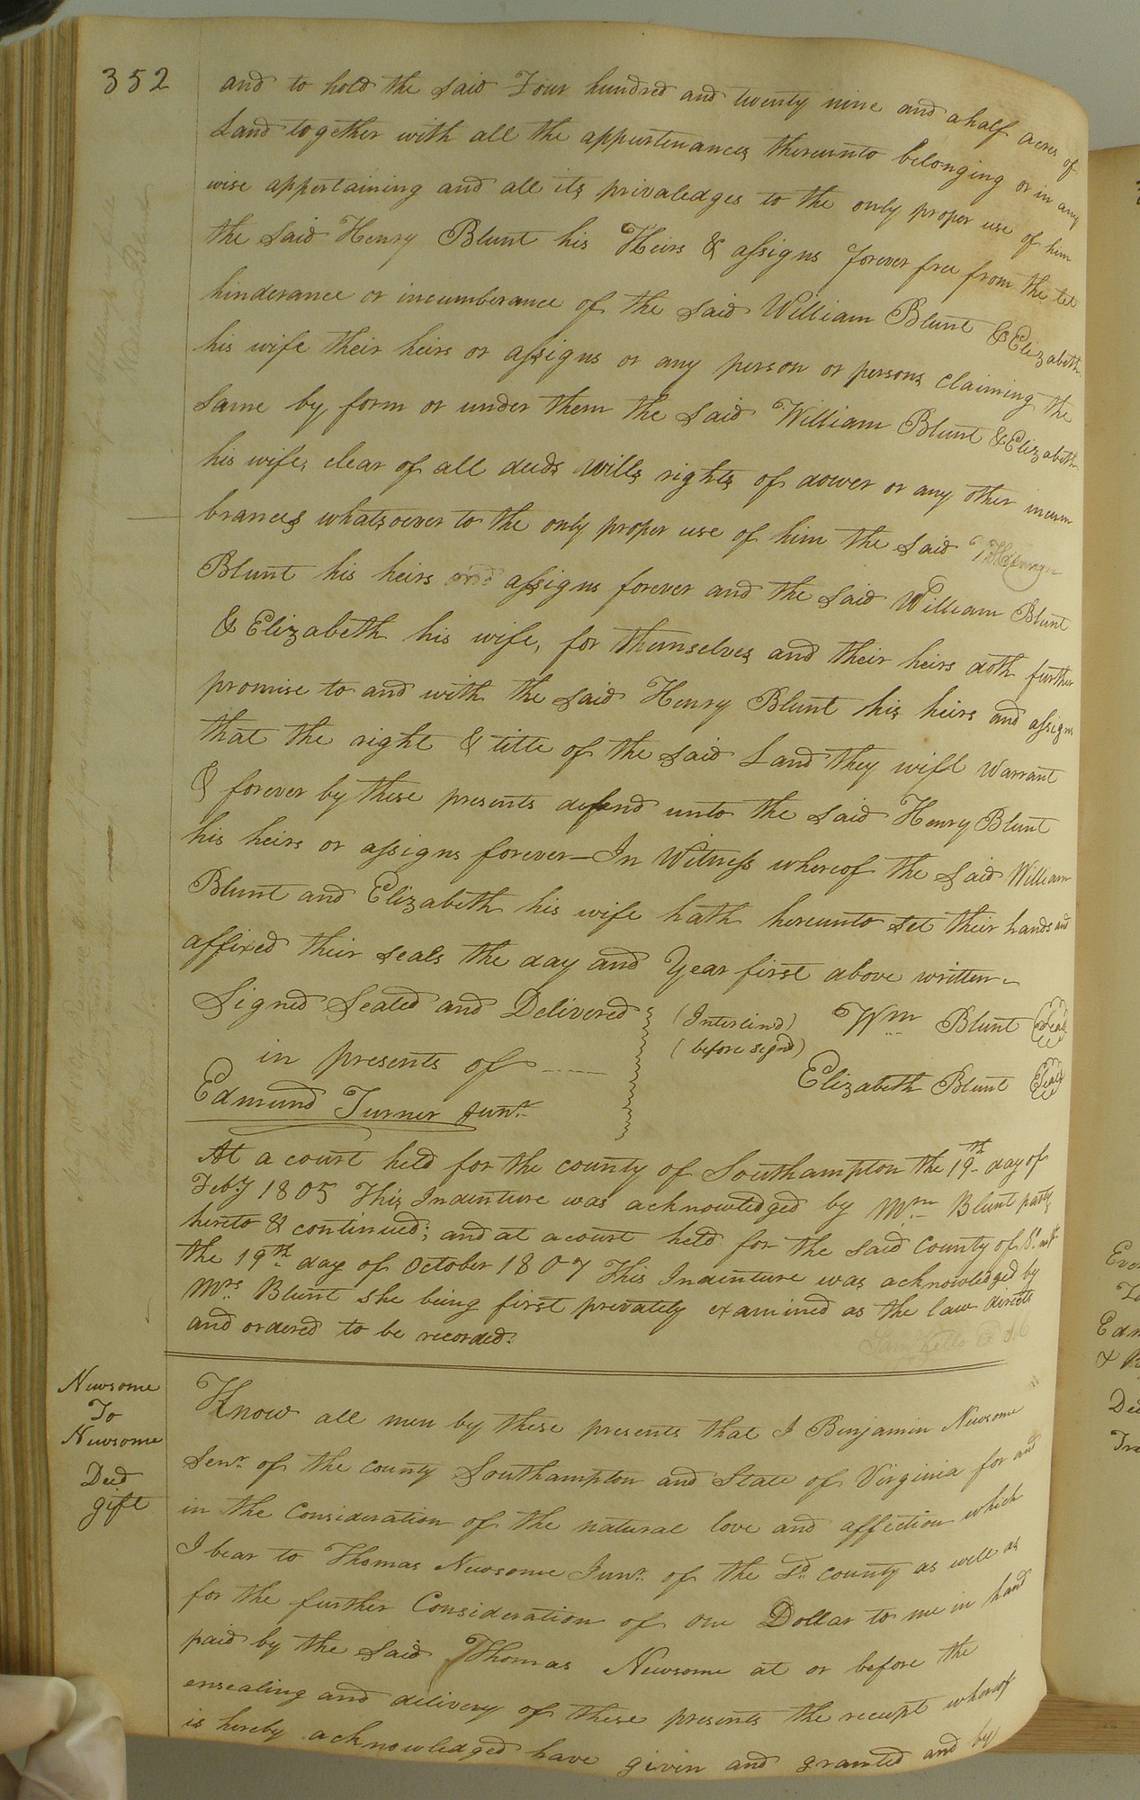 352
and to hold the said Four hundred and twenty nine and ahalf acres of
Land together with all the appurtenances thereunto belonging or in any
wise appertaining and all its privaledges to the only proper use of him
the said Henry Blunt his Heirs & assigns forever free from the let
hinderance or incumberance of the said William Blunt & Elizabeth
his wife their heirs or assigns or any person or persons claiming the
same by, form or under them the said William Blunt & Elizabeth
his wife, clear of all deeds wills rights of dower or any other incum
brances whatsoever to the only proper use of him the said
Blunt his heirs and assigns forever and the said William Blunt
& Elizabeth his wife, for themselves and their heirs doth further
promise to and with the said Henry Blunt his heirs and assigns
that the right & title of the said Land they will warrant
& forever by these presents defend unto the said Henry Blunt
his heirs or assigns forever—In Witness whereof the said William
Blunt and Elizabeth his wife hath hereunto set their hands and
affixed their seals the day and Year first above written
Signed Sealed and Delivered (Interlind) Wm Blunt Seal
in presents of (before signd) Elizabeth Blunt Seal
Edmund Turner Junr.
At a court held for the county of Southampton the 19th day of
Feby 1805 This Indenture was acknowledged by Wm Blunt party
hereto & continued; and at a court held for the said County of
the 19th day of October 1807 This Indenture was acknowledged by
Mrs. Blunt she being first privately examined as the law directs
and ordered to be recorded.
Newsome
To
Newsome
Deed
gift
Know all men by these presents that I Benjamin Newsome
Senr. of the county Southampton and State of Virginia for and
in the Consideration of the natural love and affection which
I bear to Thomas Newsome Junr. of the Sd. county as well as
for the further Consideration of one Dollar to me in hand
paid by the said Thomas Newsome at or before the
ensealing and delivery of these presents the receipt whereof
is hereby acknowledged have given and granted and by